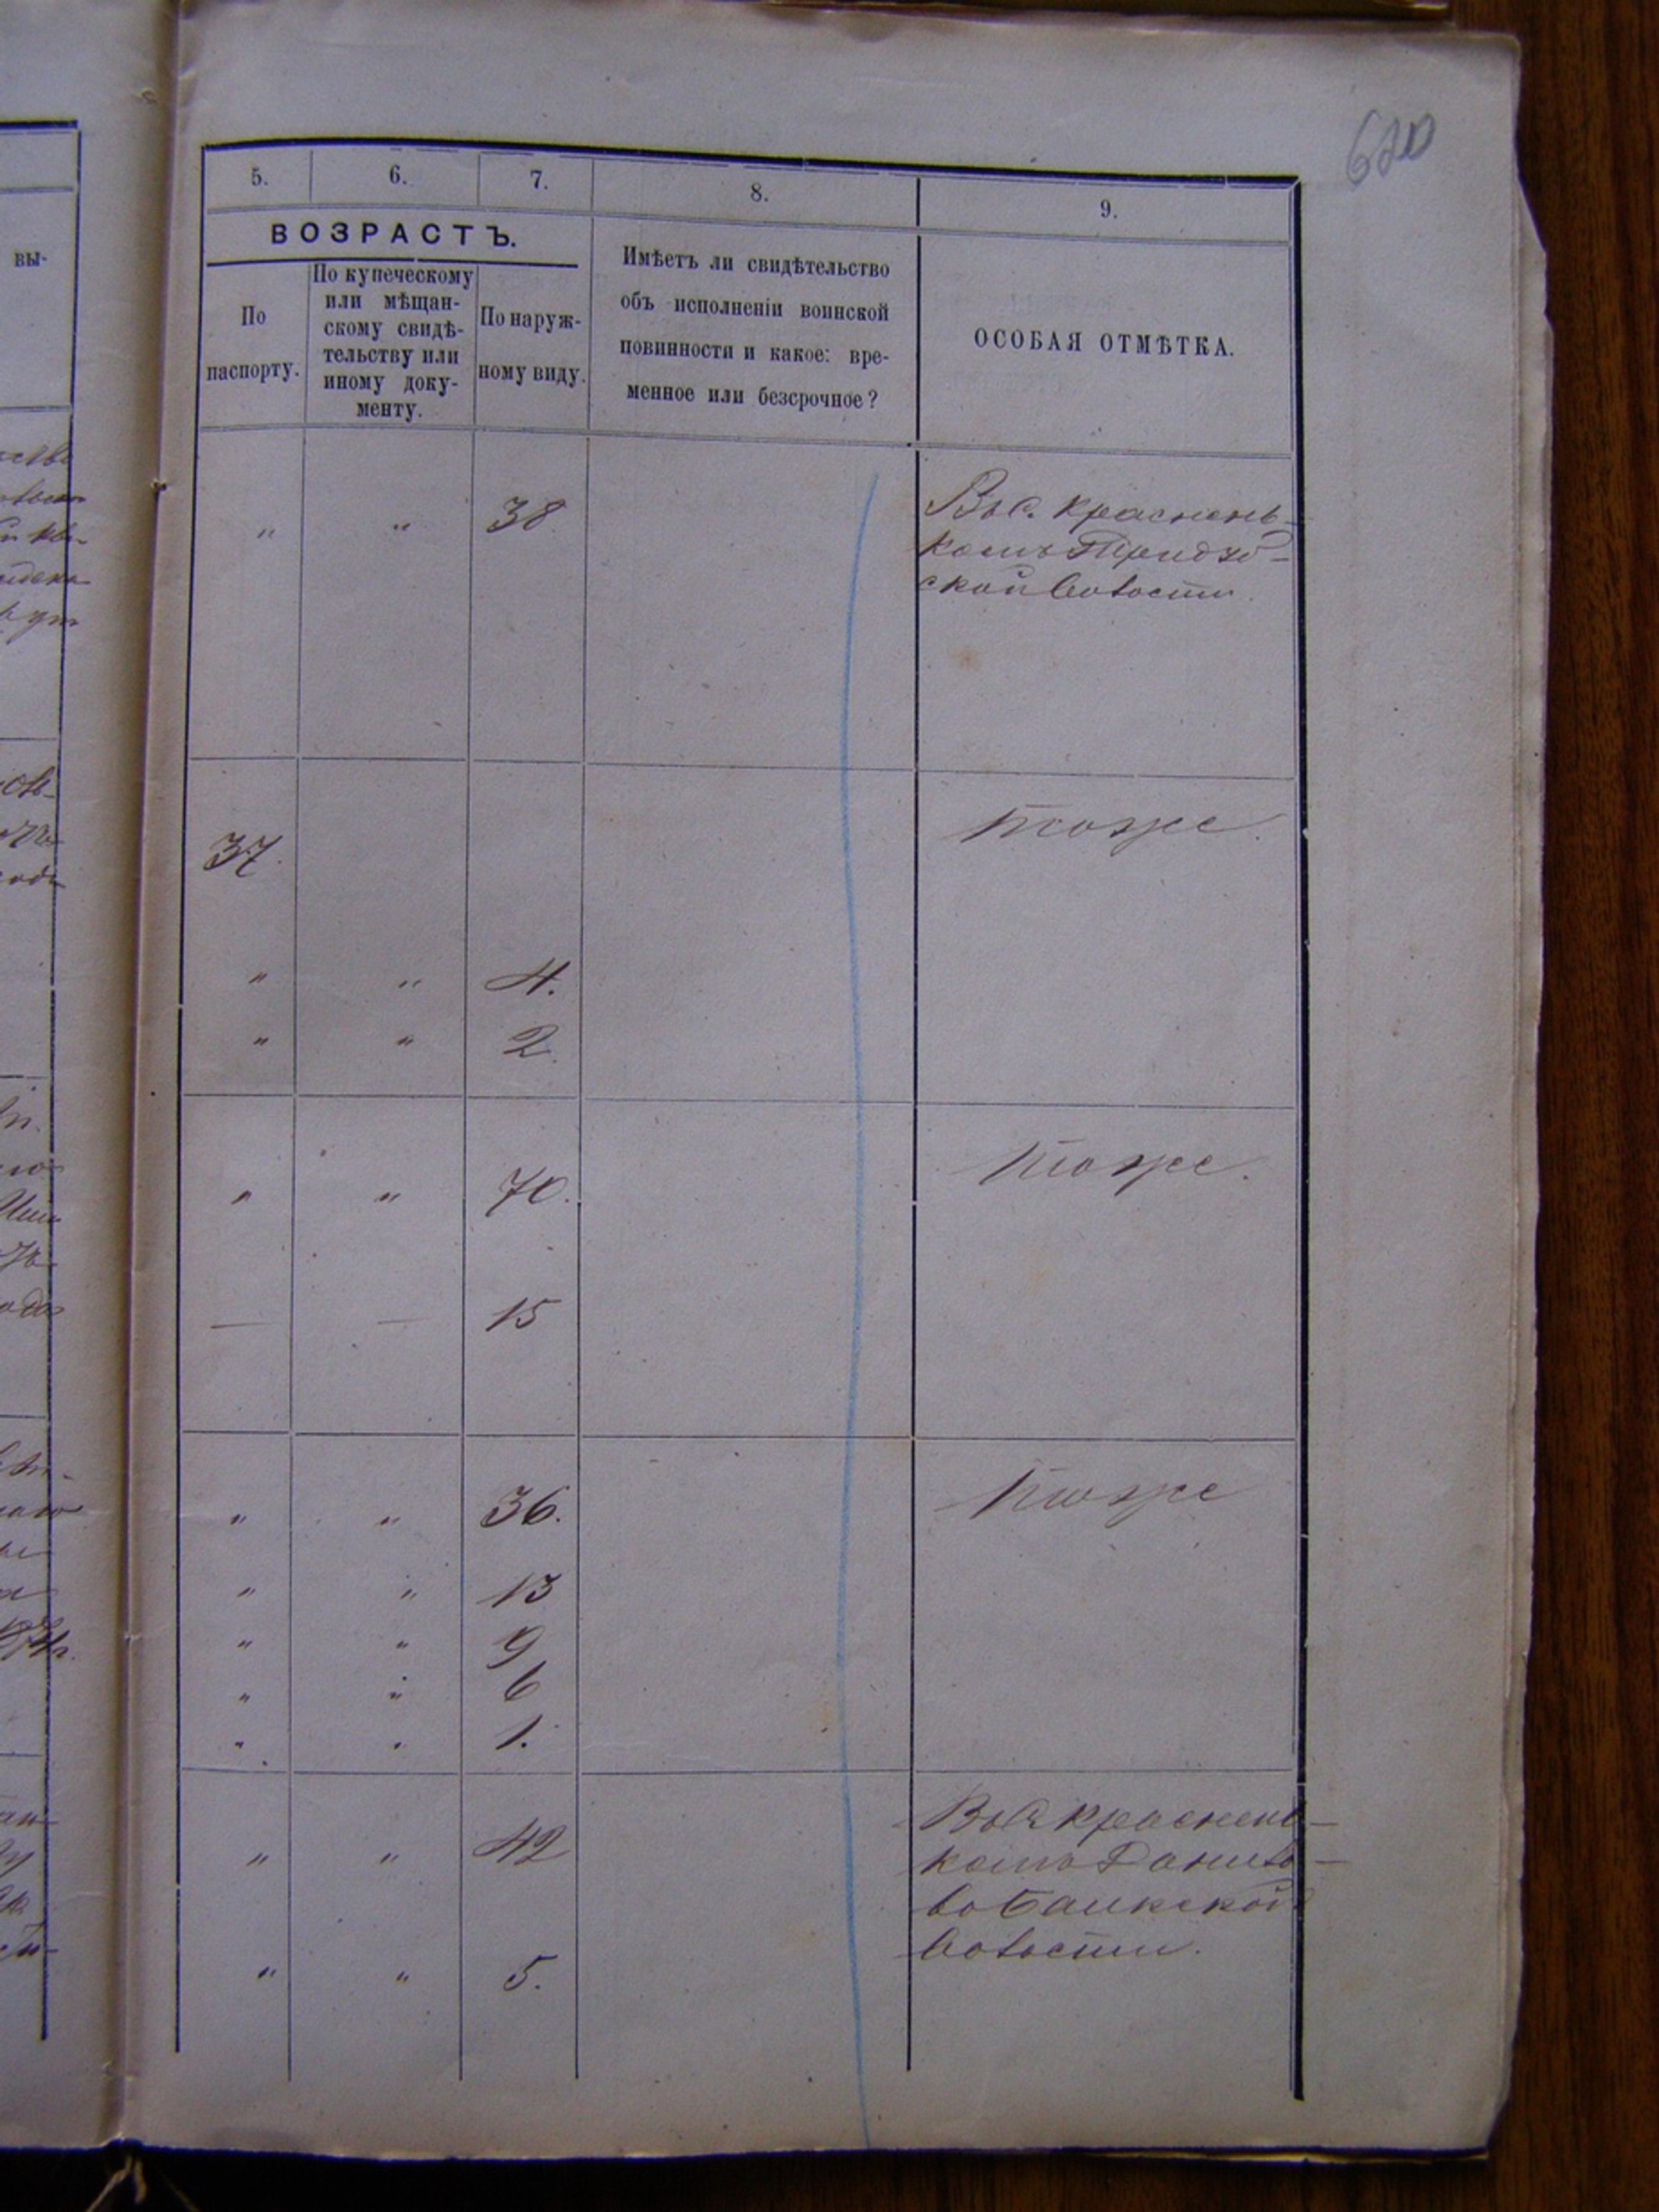 620
5. 6. 7. 8. 9.
ВОЗРАСТЪ.
По
паспорту.
По купеческому
или мѣщан-
скому свидѣ-
тельству или
иному доку-
менту.
По наруж-
ному виду.
Имѣетъ ли свидѣтельство
объ исполненіи воинской
повинности и какое: вре-
менное или безсрочное?
ОСОБАЯ ОТМѢТКА.
вы-
" " 38
Въ с. Краснень-
комъ
ской волости.
37.
тоже.
" " 4.
" " 2.
" " 70.
тоже.
— — 15
" " 36.
тоже
" " 13
" " 9
" " 6
" " 1.
" " 42
Въ с. Краснень-
комъ Данило-
во Балкской
волости.
" " 5.